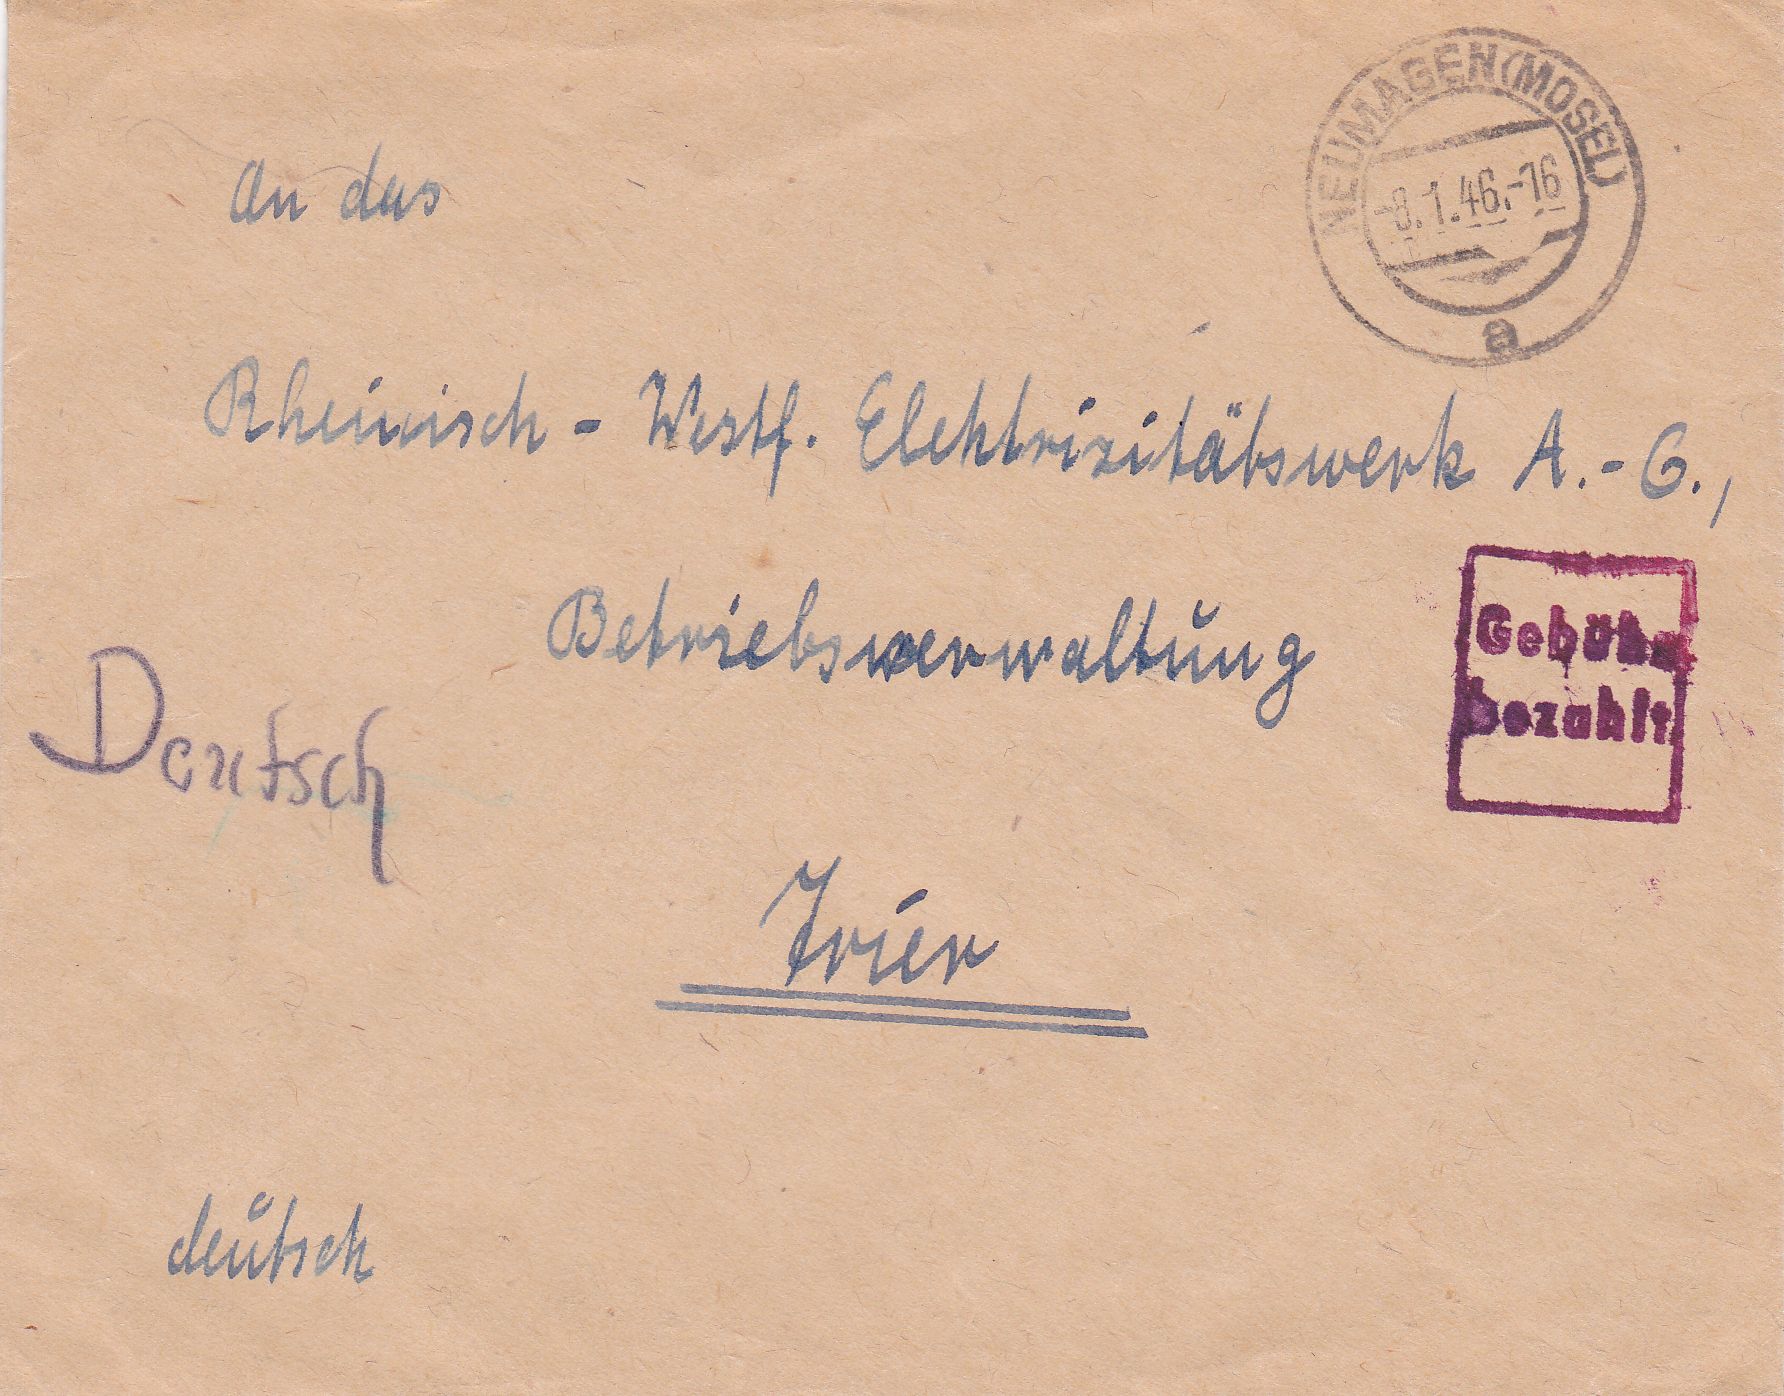 NEUMAGEN (MOSEL)
-8.1.46.-16
a
An das
Rheinisch - Westf. Elektrizitätswerk A.-G.,
Betriebsverwaltung
Gebühr
bezahlt
Deutsch
Trier
deutsch